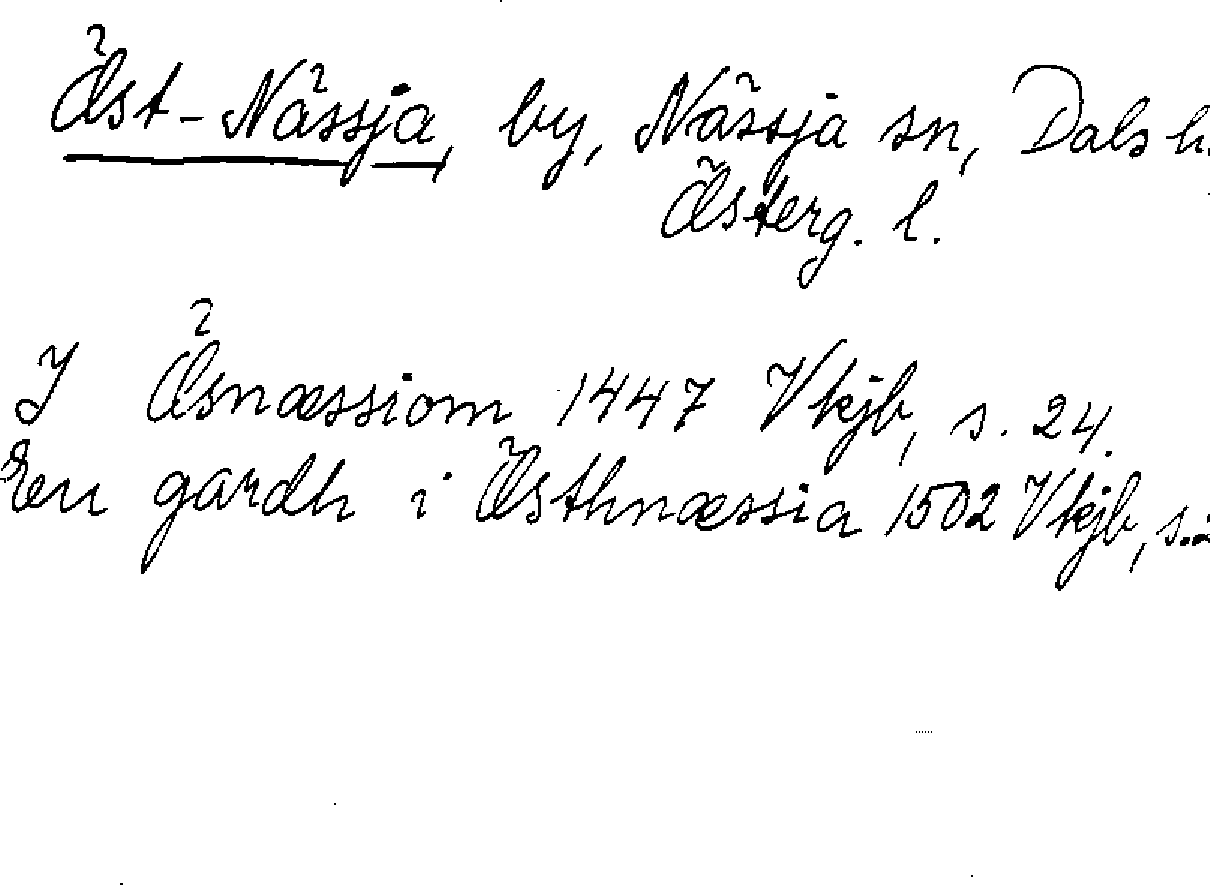 Öst-Nässja, by, Nässja sn, Dals h.
Österg. l.
I Ösnæssiom 1447 Vkjb, s. 24.
En gardh i Östhnæssia 1502 Vkjb, s.